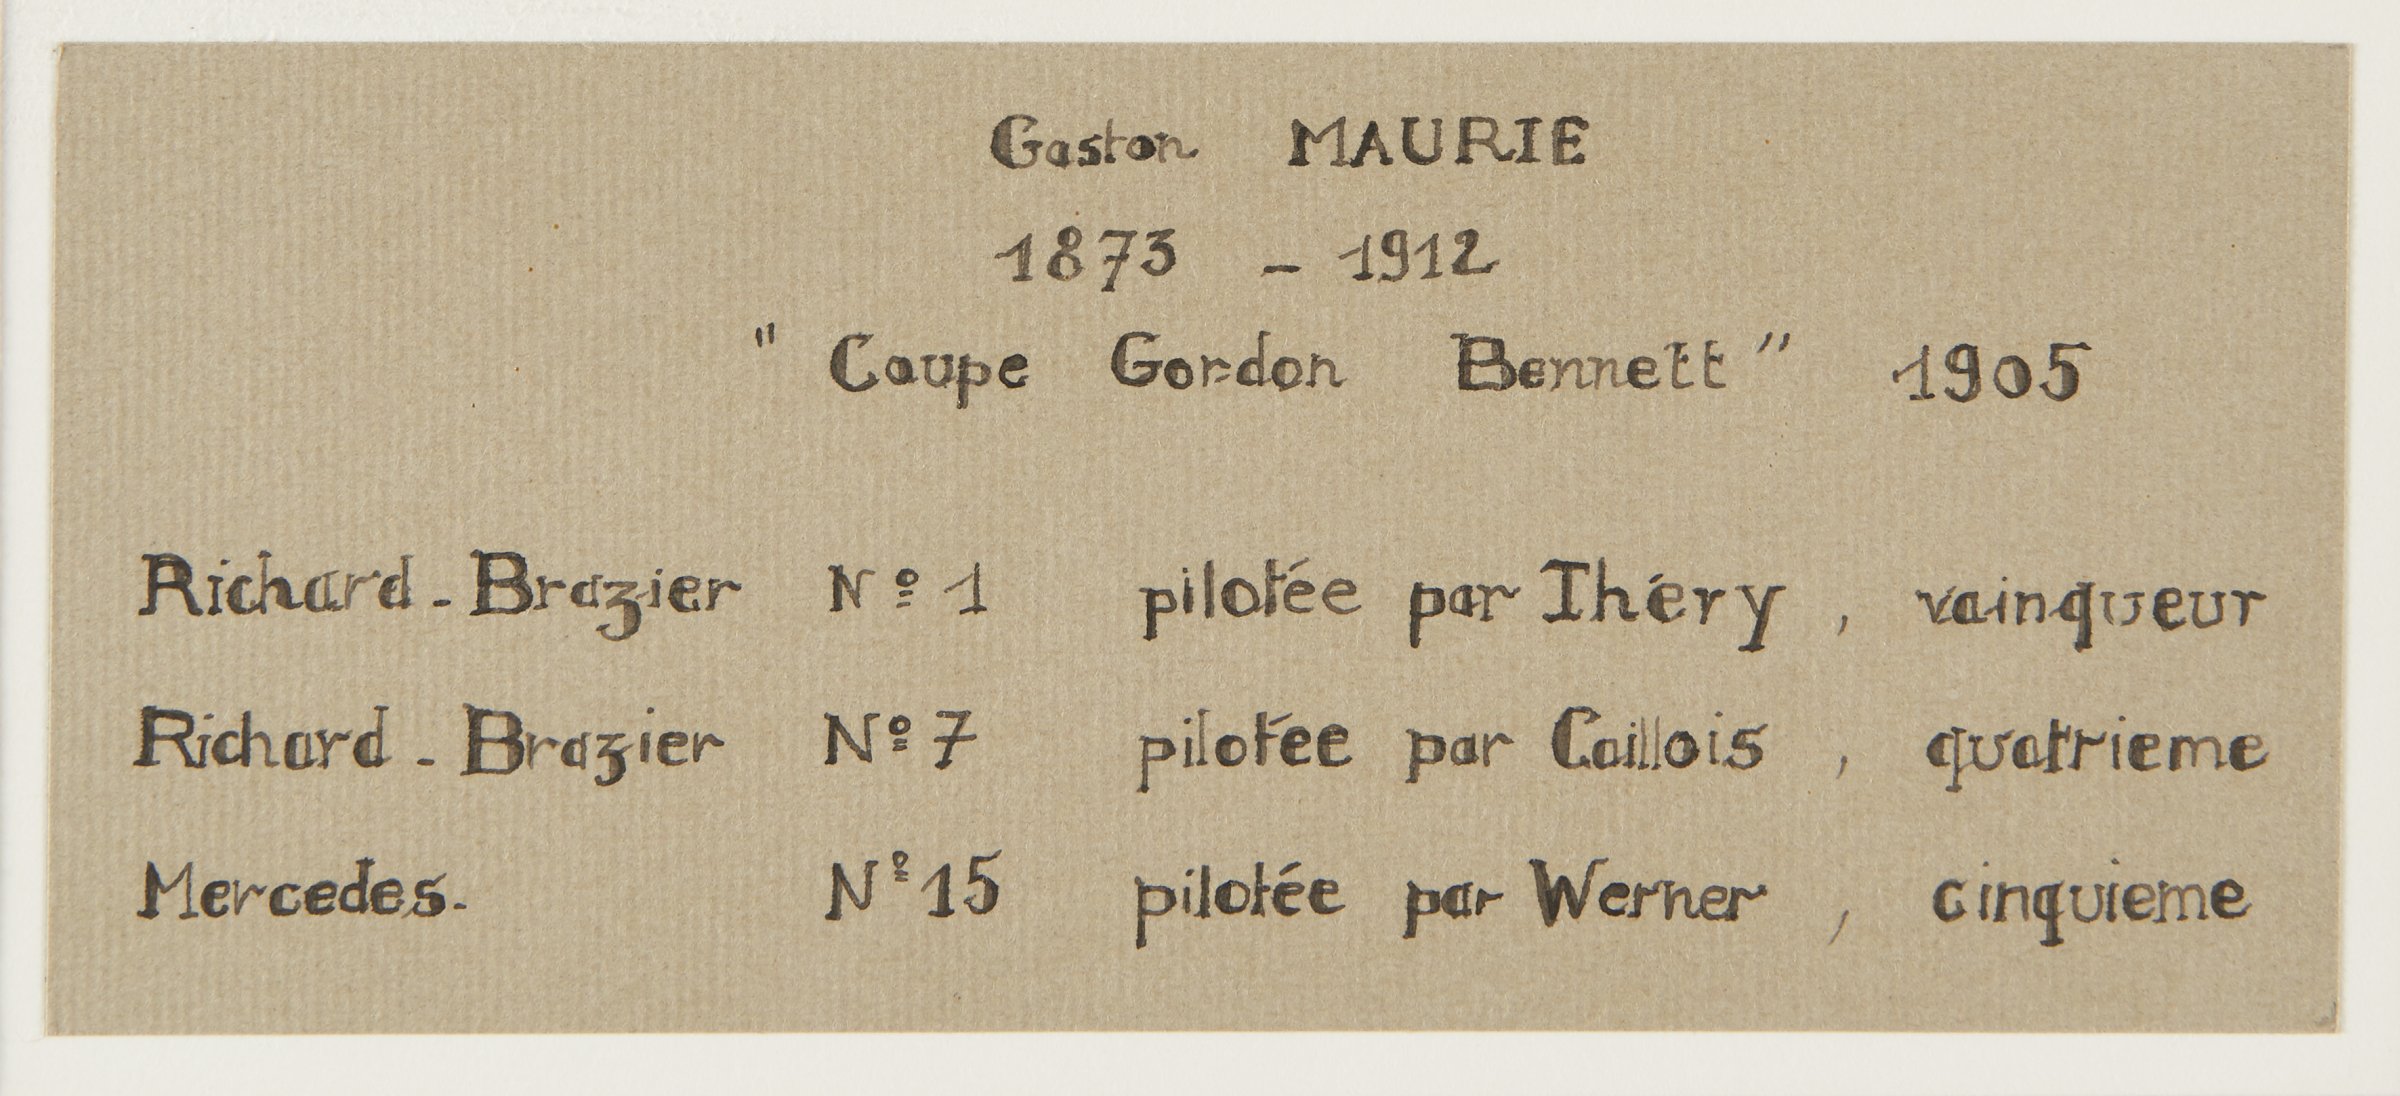 Gaston MAURIE
1873 - 1912
" Coupe Gordon Bennett " 1905
Richard - Brazier Nº 1 pilotée par Théry , vainqueur
Richard - Brazier Nº 7 pilotée par Caillois , quatrieme
Mercedes. Nº 15 pilotée par Werner , cinquieme